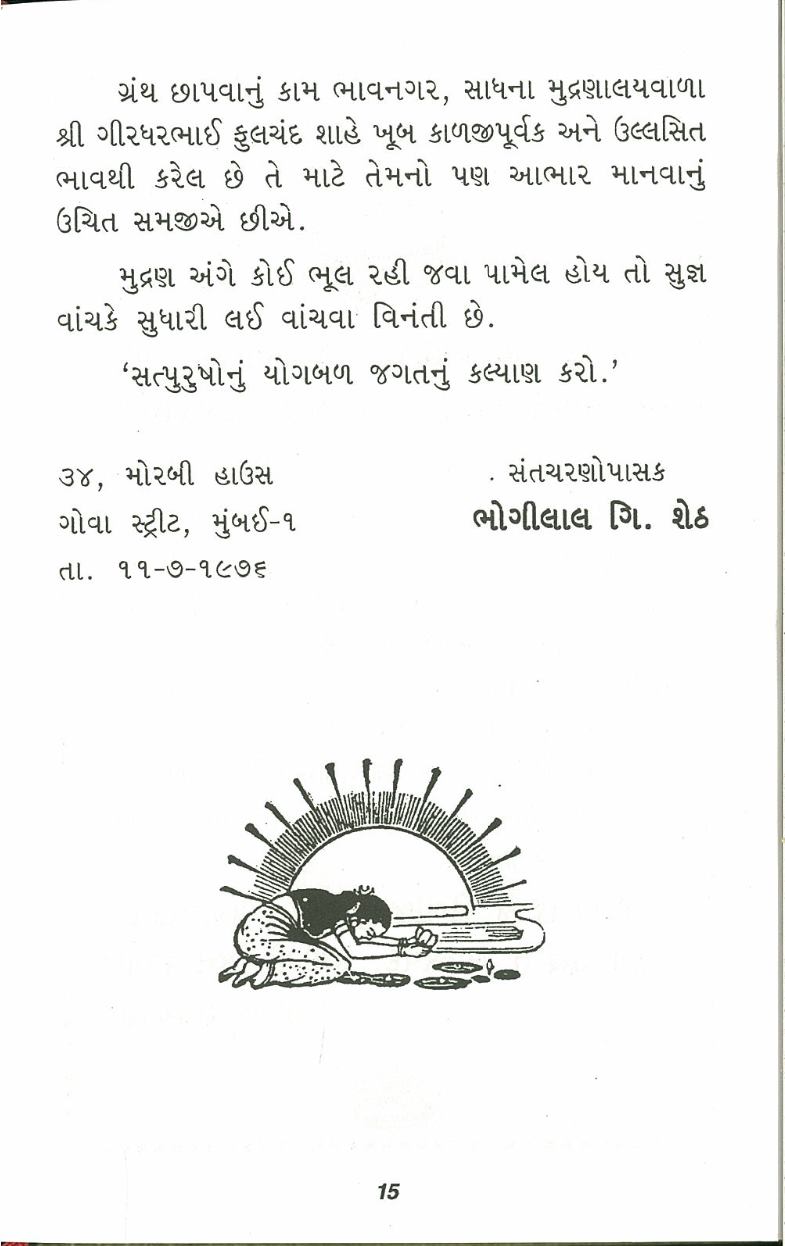 ગ્રંથ છાપવાનું કામ ભાવનગર, સાધના મુદ્રણાલયવાળા
શ્રી ગીરધરભાઈ ફુલચંદ શાહે ખૂબ કાળજીપૂર્વક અને ઉલ્લસિત
ભાવથી કરેલ છે તે માટે તેમનો પણ આભાર માનવાનું
ઉચિત સમજીએ છીએ.
મુદ્રણ અંગે કોઈ ભૂલ રહી જવા પામેલ હોય તો સુજ્ઞ
વાંચકે સુધારી લઈ વાંચવા વિનંતી છે.
‘સત્પુરુષોનું યોગબળ જગતનું કલ્યાણ કરો.’
૩૪, મોરબી હાઉસ
ગોવા સ્ટ્રીટ, મુંબઈ-૧
તા. ૧૧-૭-૧૯૭૬
સંતચરણોપાસક
ભોગીલાલ ગિ. શેઠ
15